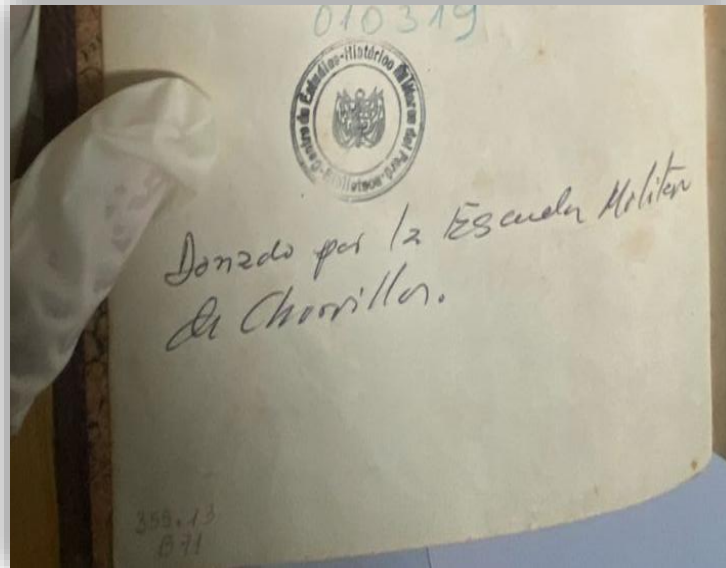 010319
Centro de Estudios-Histórico Militares del Perú-
-Biblioteca-
Donado por la Escuela Militar
de Chorrillos.
355.13
B71